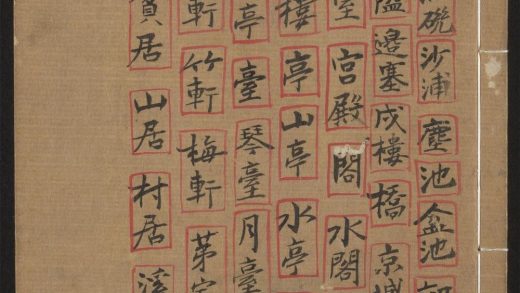 沙浦 塵池 盆池
邊塞 戍樓 橋 京城
宮殿 閣 水閣
樓 亭 山亭 水亭
亭 臺 琴臺 月臺
軒 竹軒 梅軒 茅
居 山居 村居 溪